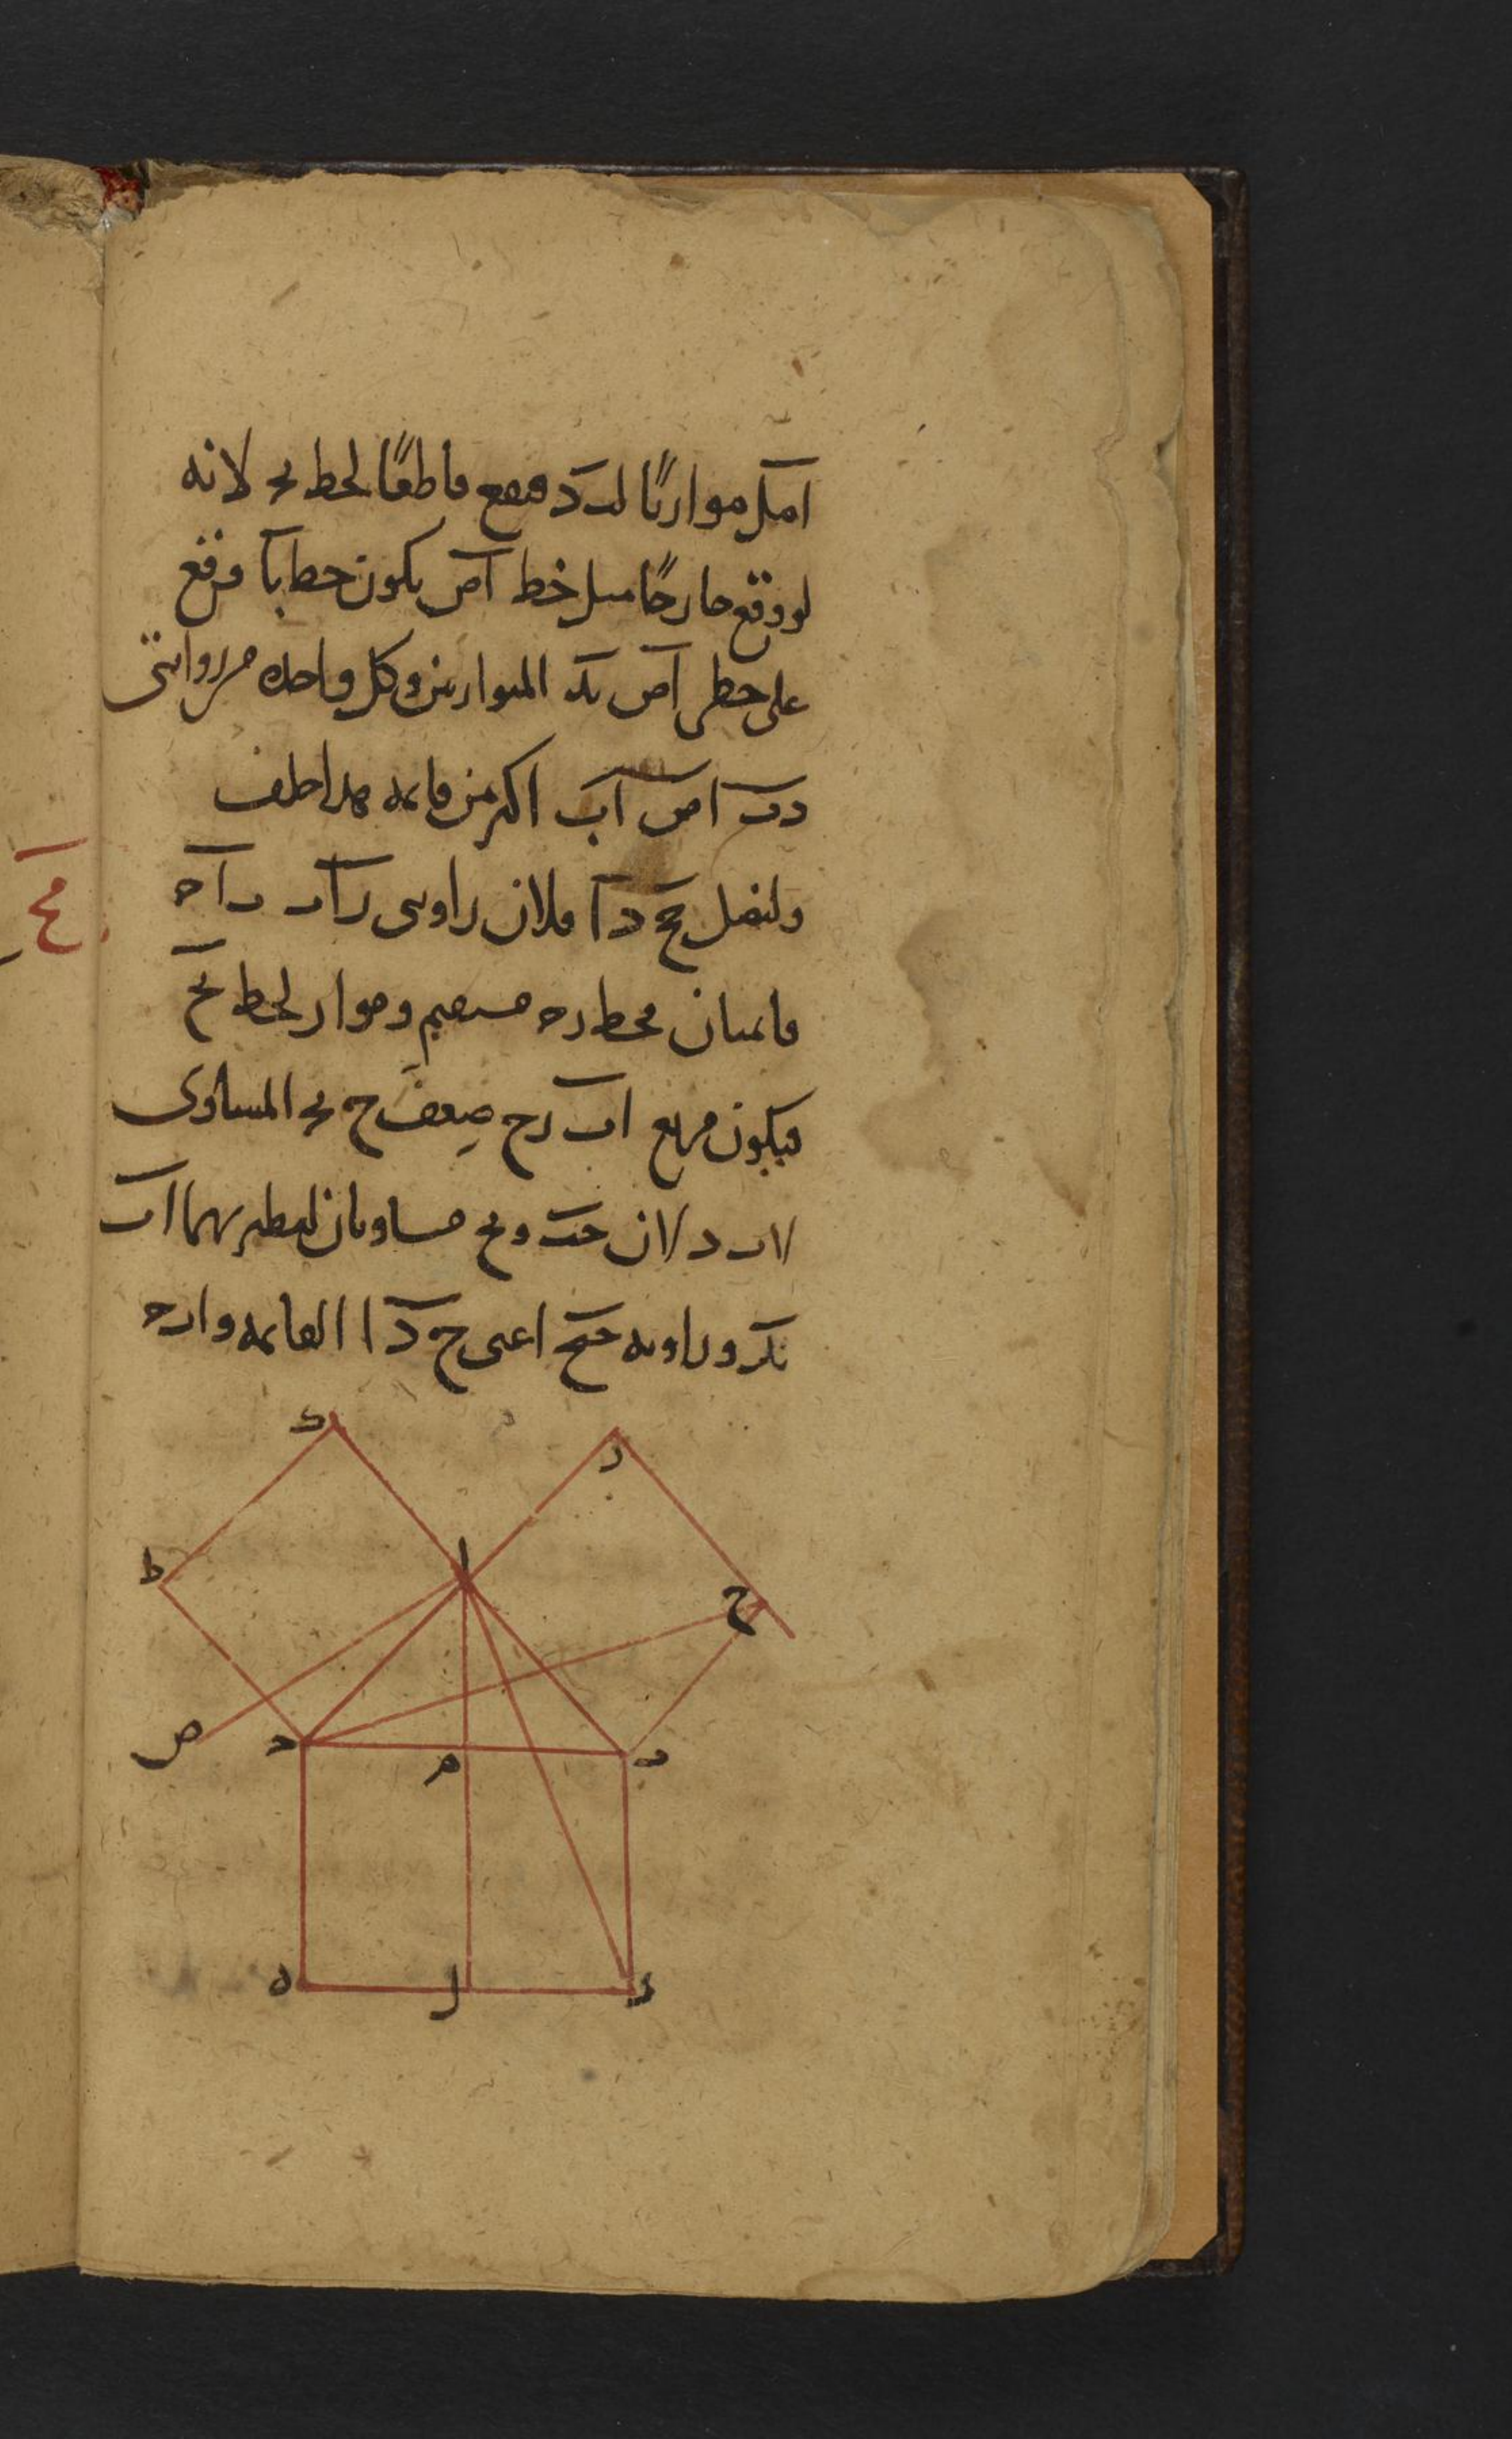 امل موازيًا لب د فيقع قاطعًا لخط بج لانه
لو وقع خارجًا مثل خط اص يكون خط با وقع
على خطى اص بد المتوازيين وكل واحدة من زوايتى
دب اص اب اكبر من قائمة هذا خلف
ولنصل حج د ا فلان زاويتى زاب باج
قائمتان فخط زج مستقيم وموازٍ لخط بح
فيكون مربع اب زح ضعف ح بج المساوى
لاب د لان حب وبج مساويان لنظيريهما اب
بد وزاوية حبج اعنى ح د ا القائمة وابج
ك
ز
ا
ط
ح
ص
ج
م
ب
ه
ل
د
مح